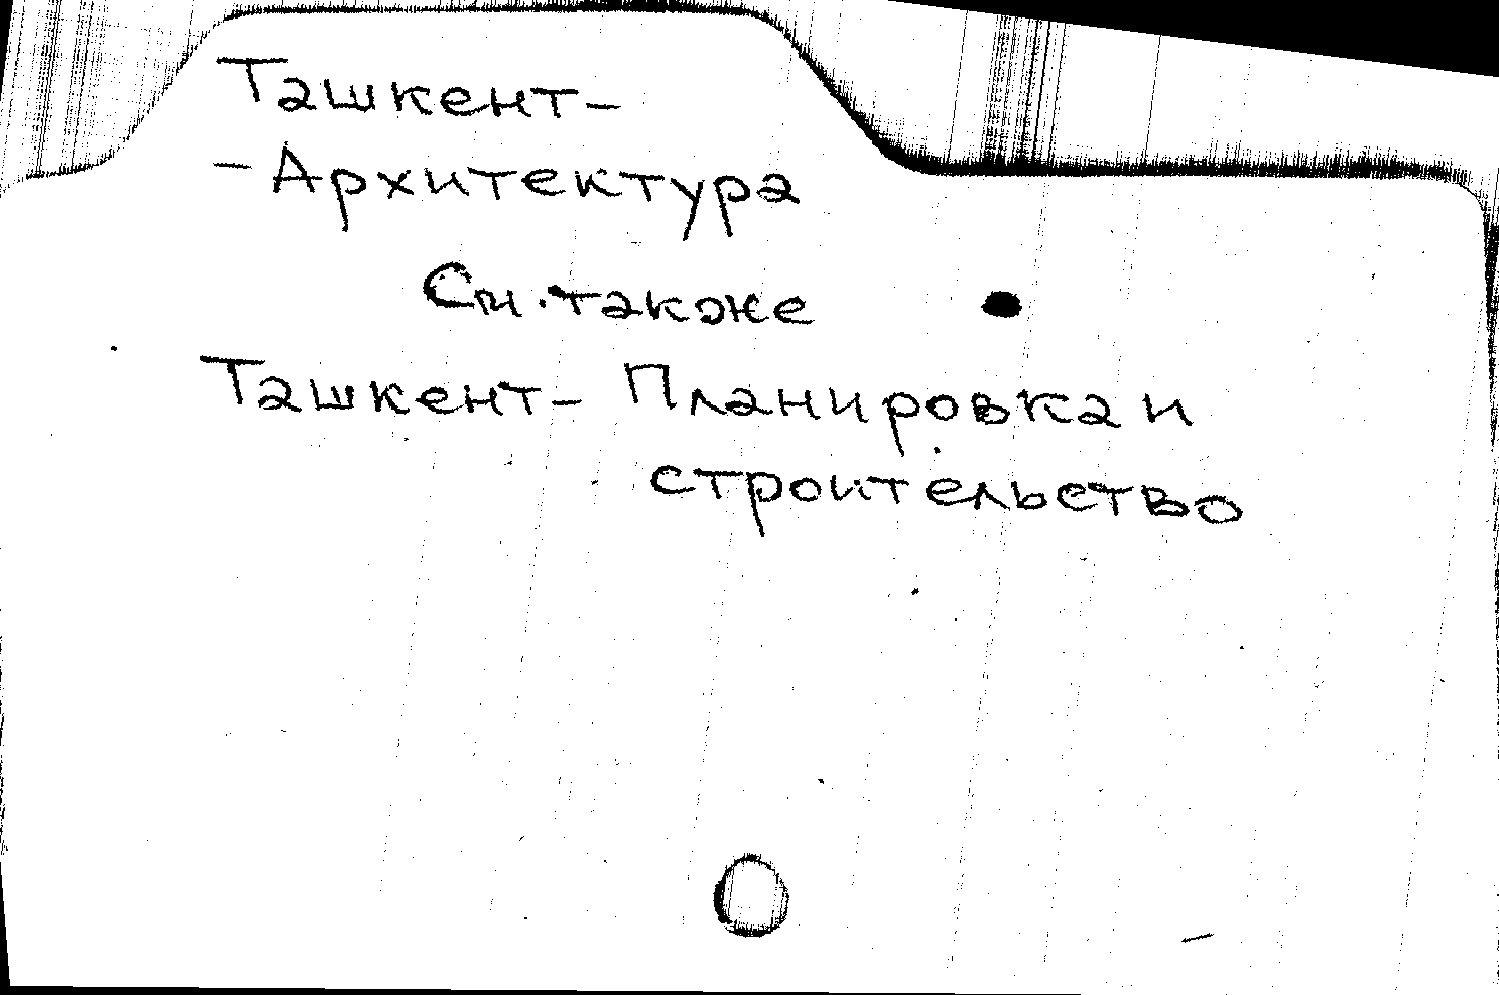 Ташкент-
-Архитектура
См. также
Ташкент- Планировка и
строительство